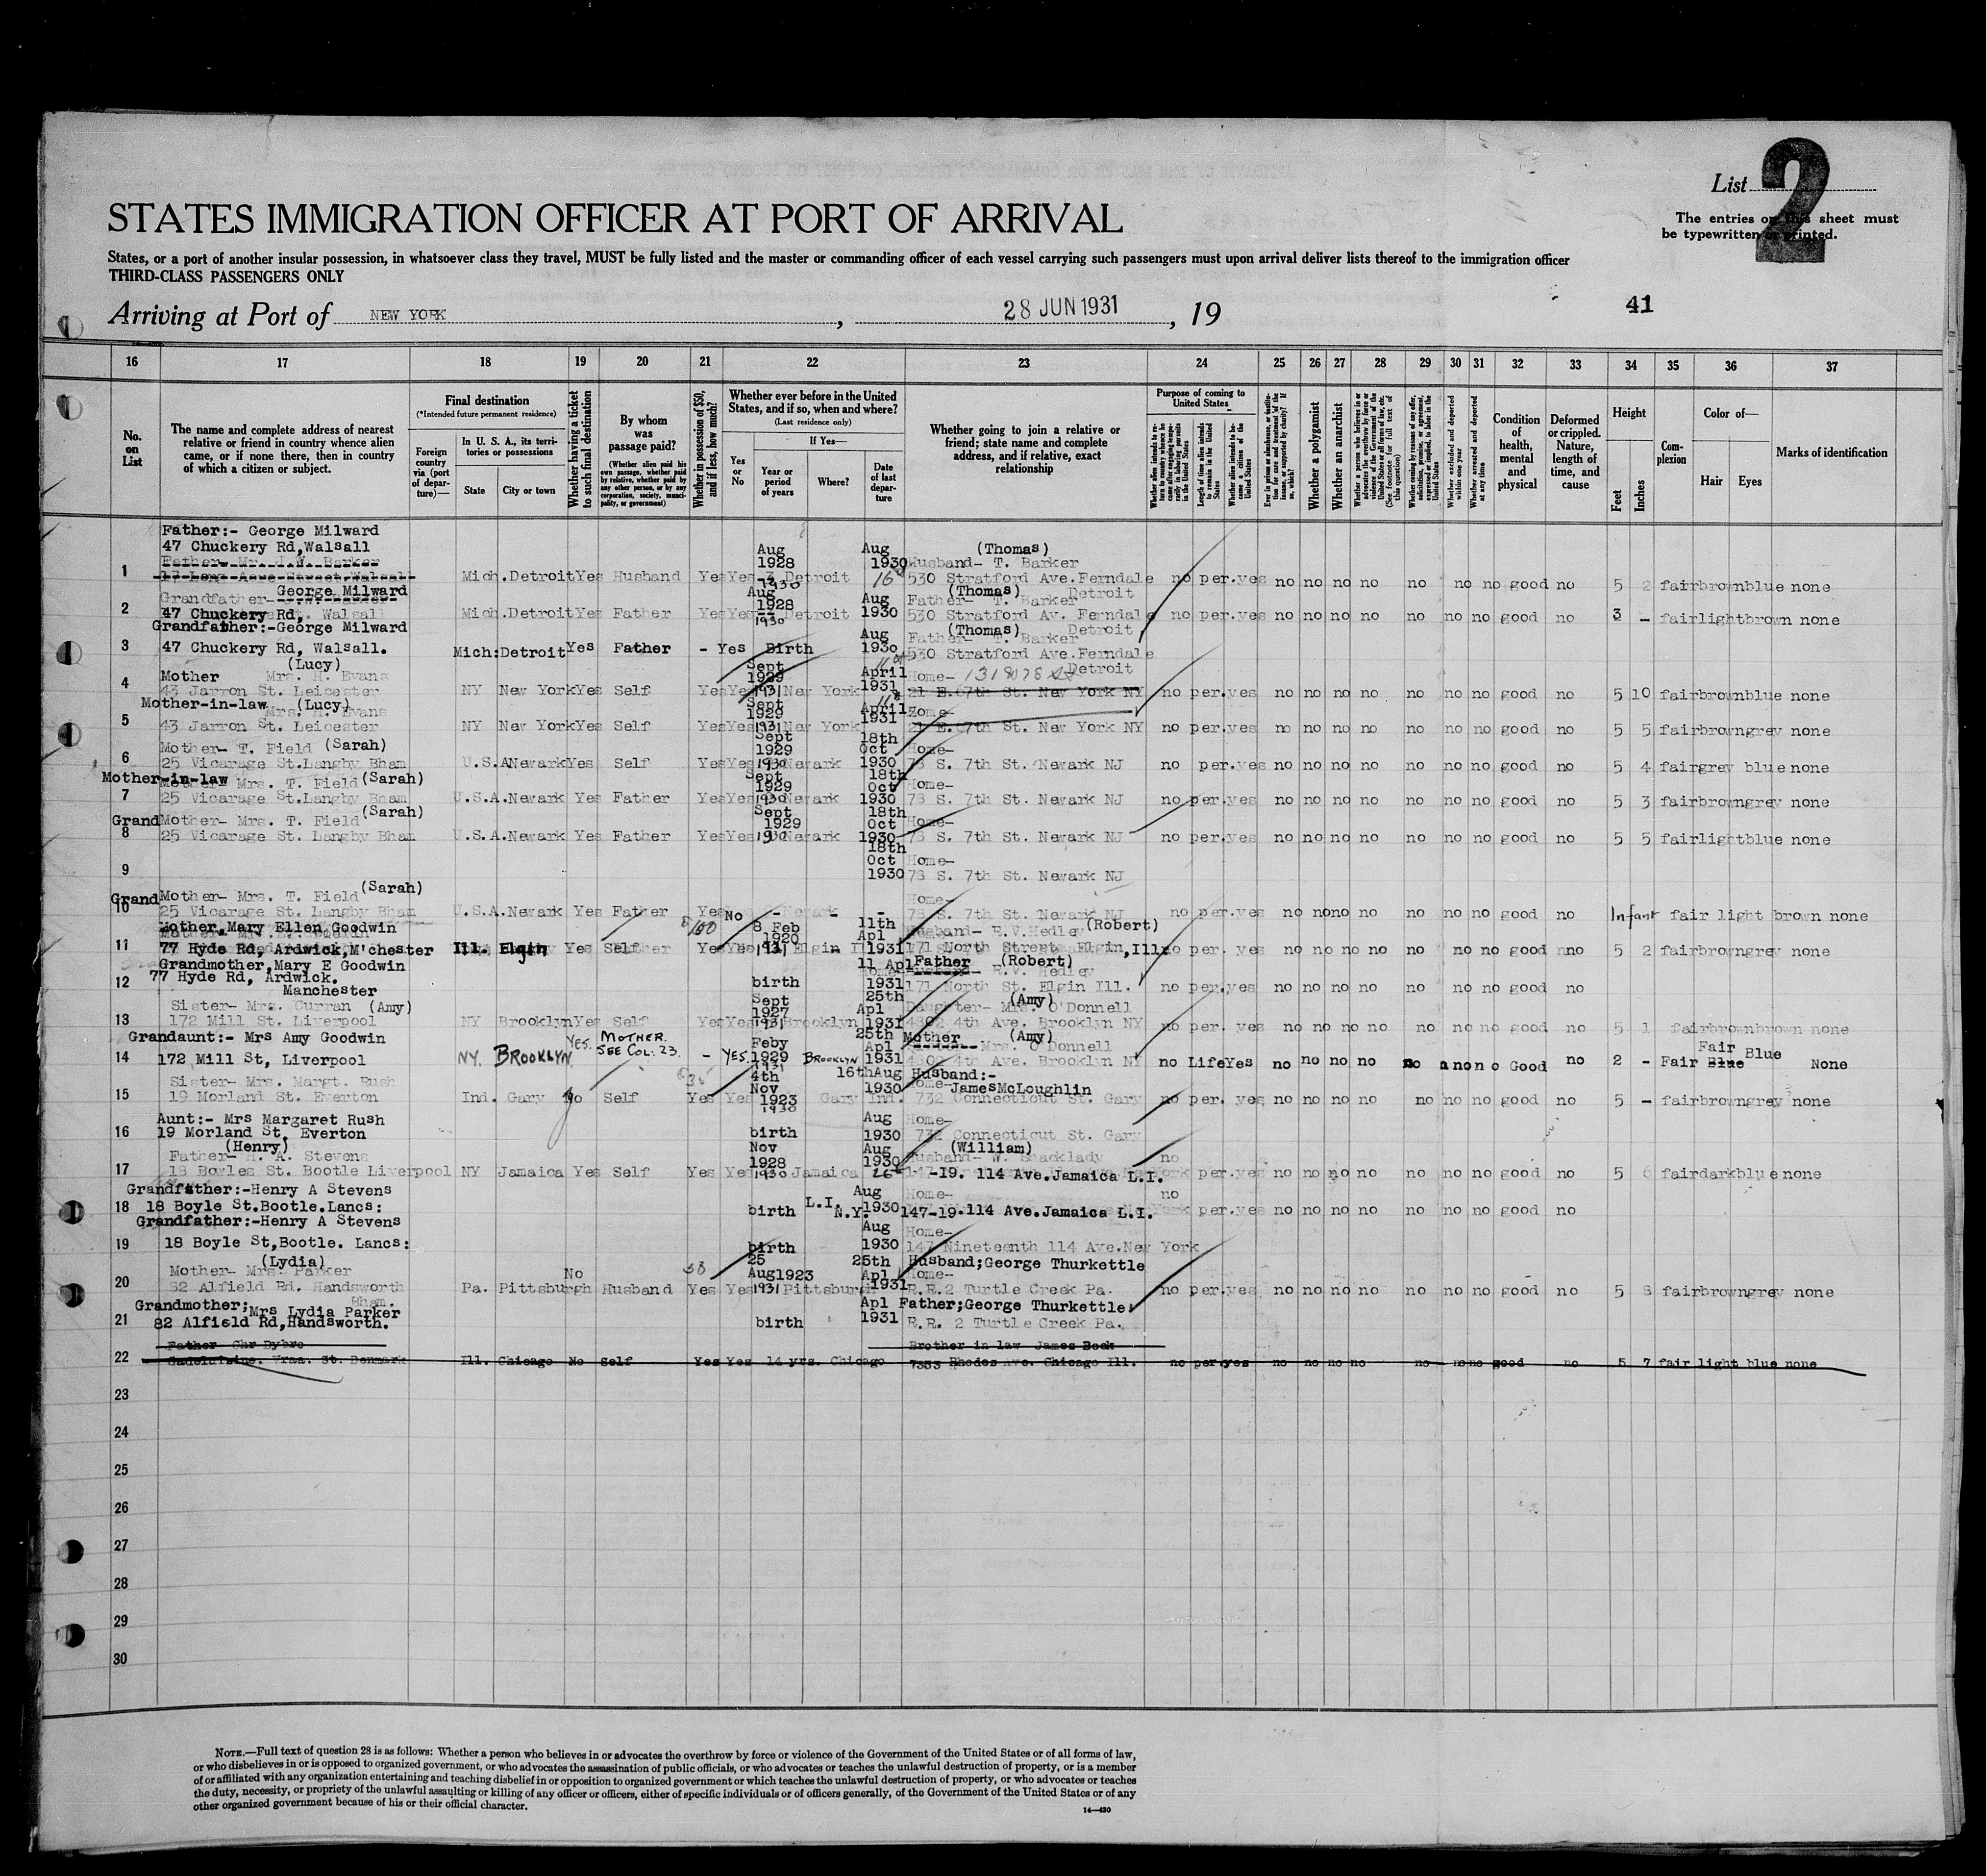 List 2
The entries on this sheet must
be typewritten or printed.
STATES IMMIGRATION OFFICER AT PORT OF ARRIVAL
States, or a port of another insular possession, in whatsoever class they travel, MUST be fully listed and the master or commanding officer of each vessel carrying such passengers must upon arrival deliver lists thereof to the immigration officer
THIRD-CLASS PASSENGERS ONLY
Arriving at Port of NEW YORK, 28 JUN 1931, 19
41
16 17 18 19 20 21 22 23 24 25 26 27 28 29 30 31 32 33 34 35 36 37
No. on List
The name and complete address of nearest relative or friend in country whence alien came, or if none there, then in country of which a citizen or subject.
Final destination
(*Intended future permanent residence)
Foreign country via (port of departure)—
In U. S. A., its territories or possessions
State
City or town
Whether having a ticket to such final destination
By whom was passage paid?
(Whether alien paid his own passage, whether paid by relative, whether paid by any other person, or by any corporation, society, municipality, or government)
Whether in possession of $50, and if less, how much?
Whether ever before in the United States, and if so, when and where?
(Last residence only)
Yes or No
If Yes—
Year or period of years
Where?
Date of last departure
Whether going to join a relative or friend; state name and complete address, and if relative, exact relationship
Purpose of coming to United States
Length of time alien intends to remain in the United States
Whether alien intends to become a citizen of the United States
Whether a polygamist
Whether an anarchist
Whether arrested and deported at any time
Condition of health, mental and physical
Deformed or crippled. Nature, length of time, and cause
Height
Feet
Inches
Complexion
Color of—
Hair
Eyes
Marks of identification
Father:- George Milward
47 Chuckery Rd,Walsall
Father- Mr. J.W. Barker
1 Mich. Detroit Yes Husband Yes Yes Aug 1928 1930 Detroit Aug 1930 16 Husband- T. Barker (Thomas) 530 Stratford Ave. Ferndale Detroit no per. yes no no no no no no no good no 5 2 fair brown blue none
Grandfather- George Milward
2 47 Chuckery Rd, Walsall Mich. Detroit Yes Father Yes Yes Aug 1928 1930 Detroit Aug 1930 Father- T. Barker (Thomas) 530 Stratford Ave. Ferndale Detroit no per. yes no no no no no no no good no 3 - fair light brown none
Grandfather:-George Milward
3 47 Chuckery Rd, Walsall. Mich: Detroit Yes Father - Yes Birth Aug 1930 Father- T. Barker (Thomas) 530 Stratford Ave. Ferndale Detroit
Mother Mrs. H. Evans (Lucy)
4 43 Jarron St. Leicester NY New York Yes Self Yes Yes Sept 1929 1931 New York April 1931 Home- 21 E. 67th St. New York NY no per. yes no no no no no no no good no 5 10 fair brown blue none
Mother-in-law Mrs. H. Evans (Lucy)
5 43 Jarron St. Leicester NY New York Yes Self Yes Yes Sept 1929 1931 New York April 1931 Home- 21 E. 67th St. New York NY no per. yes no no no no no no no good no 5 5 fair brown grey none
Mother- T. Field (Sarah)
6 25 Vicarage St. Langby Bham U.S.A Newark Yes Self Yes Yes Sept 1929 1930 Newark 18th Oct 1930 Home- 78 S. 7th St. Newark NJ no per. yes no no no no no no no good no 5 4 fair grey blue none
Mother-in-law Mrs. T. Field (Sarah)
7 25 Vicarage St. Langby Bham U.S.A. Newark Yes Father Yes Yes Sept 1929 1930 Newark 18th Oct 1930 Home- 78 S. 7th St. Newark NJ no per. yes no no no no no no no good no 5 3 fair brown grey none
Grand Mother- Mrs. T. Field (Sarah)
8 25 Vicarage St. Langby Bham U.S.A. Newark Yes Father Yes Yes Sept 1929 1930 Newark 18th Oct 1930 Home- 78 S. 7th St. Newark NJ no per. yes no no no no no no no good no 5 5 fair light blue none
9 18th Oct 1930 Home- 78 S. 7th St. Newark NJ
Grand Mother- Mrs. T. Field (Sarah)
10 25 Vicarage St. Langby Bham U.S.A. Newark Yes Father Yes No - - - Home- 78 S. 7th St. Newark NJ no per. yes no no no no no no no good no Infant fair light brown none
Mother, Mary Ellen Goodwin
11 77 Hyde Rd, Ardwick, M'chester Ill. Elgin Yes Self Yes Yes 8 Feb 1920 1931 Elgin 11th Apl 1931 Husband- R.V. Hedley (Robert) 171 North Street Elgin, Ill. no per. yes no no no no no no no good no 5 2 fair brown grey none
Grandmother, Mary E Goodwin
12 77 Hyde Rd, Ardwick. Manchester birth 11 Apl 1931 Father (Robert) R.V. Hedley 171 North St. Elgin Ill. no per. yes no no no no no no no good no
Sister- Mrs. Curran (Amy)
13 172 Mill St. Liverpool NY Brooklyn Yes Self Yes Yes Sept 1927 1931 Brooklyn 25th Apl 1931 Daughter- Mrs. O'Donnell (Amy) 4802 4th Ave. Brooklyn NY no per. yes no no no no no no no good no 5 1 fair brown brown none
Grandaunt:- Mrs Amy Goodwin
14 172 Mill St, Liverpool NY. BROOKLYN YES. MOTHER. SEE COL: 23. - YES. Feby 1929 1931 BROOKLYN 25th Apl 1931 Mother (Amy) Mrs. O'Donnell 4802 4th Ave. Brooklyn NY no Life Yes no no no no no no no Good no 2 - Fair Fair Blue Blue None
Sister- Mrs. Margt. Rush
15 19 Morland St. Everton Ind. Gary No Self Yes Yes 4th Nov 1923 1930 Gary Ind. 16th Aug 1930 Husband:- James McLoughlin Home- 732 Connecticut St. Gary no per. yes no no no no no no no good no 5 - fair brown grey none
Aunt:- Mrs Margaret Rush
16 19 Morland St. Everton birth Aug 1930 Home- 732 Connecticut St. Gary
Father- H. A. Stevens (Henry)
17 18 Bowles St. Bootle Liverpool NY Jamaica Yes Self Yes Yes Nov 1928 1930 Jamaica Aug 1930 26 Husband- W. Shacklady (William) 147-19. 114 Ave. Jamaica L.I. no per. yes no no no no no no no good no 5 6 fair dark blue none
Grandfather:-Henry A Stevens
18 18 Boyle St. Bootle. Lancs: birth L.I. N.Y. Aug 1930 Home- 147-19. 114 Ave. Jamaica L.I. no per. yes no no no no no no no good no
Grandfather:-Henry A Stevens
19 18 Boyle St, Bootle. Lancs: birth Aug 1930 Home- 147 Nineteenth 114 Ave. New York
Mother- Mrs. Parker (Lydia)
20 82 Alfield Rd. Handsworth Bham. Pa. Pittsburgh No Husband Yes Yes 25 Aug 1923 1931 Pittsburgh 25th Apl 1931 Husband; George Thurkettle Home- R.R. 2 Turtle Creek Pa. no per. yes no no no no no no no good no 5 8 fair brown grey none
Grandmother; Mrs Lydia Parker
21 82 Alfield Rd, Handsworth. birth Apl 1931 Father; George Thurkettle R.R. 2 Turtle Creek Pa.
Father Chr Dybro
22 Vraa. St. Denmark Ill. Chicago No Self Yes Yes 14 yrs. Chicago Brother in law James Beck 7353 Rhodes Ave. Chicago Ill. no per. yes no no no no no no no good no 5 7 fair light blue none
23
24
25
26
27
28
29
30
NOTE.—Full text of question 28 is as follows: Whether a person who believes in or advocates the overthrow by force or violence of the Government of the United States or of all forms of law,
or who disbelieves in or is opposed to organized government, or who advocates the assassination of public officials, or who advocates or teaches the unlawful destruction of property, or is a member
of or affiliated with any organization entertaining and teaching disbelief in or opposition to organized government or which teaches the unlawful destruction of property, or who advocates or teaches
the duty, necessity, or propriety of the unlawful assaulting or killing of any officer or officers, either of specific individuals or of officers generally, of the Government of the United States or of any
other organized government because of his or their official character.
14—430